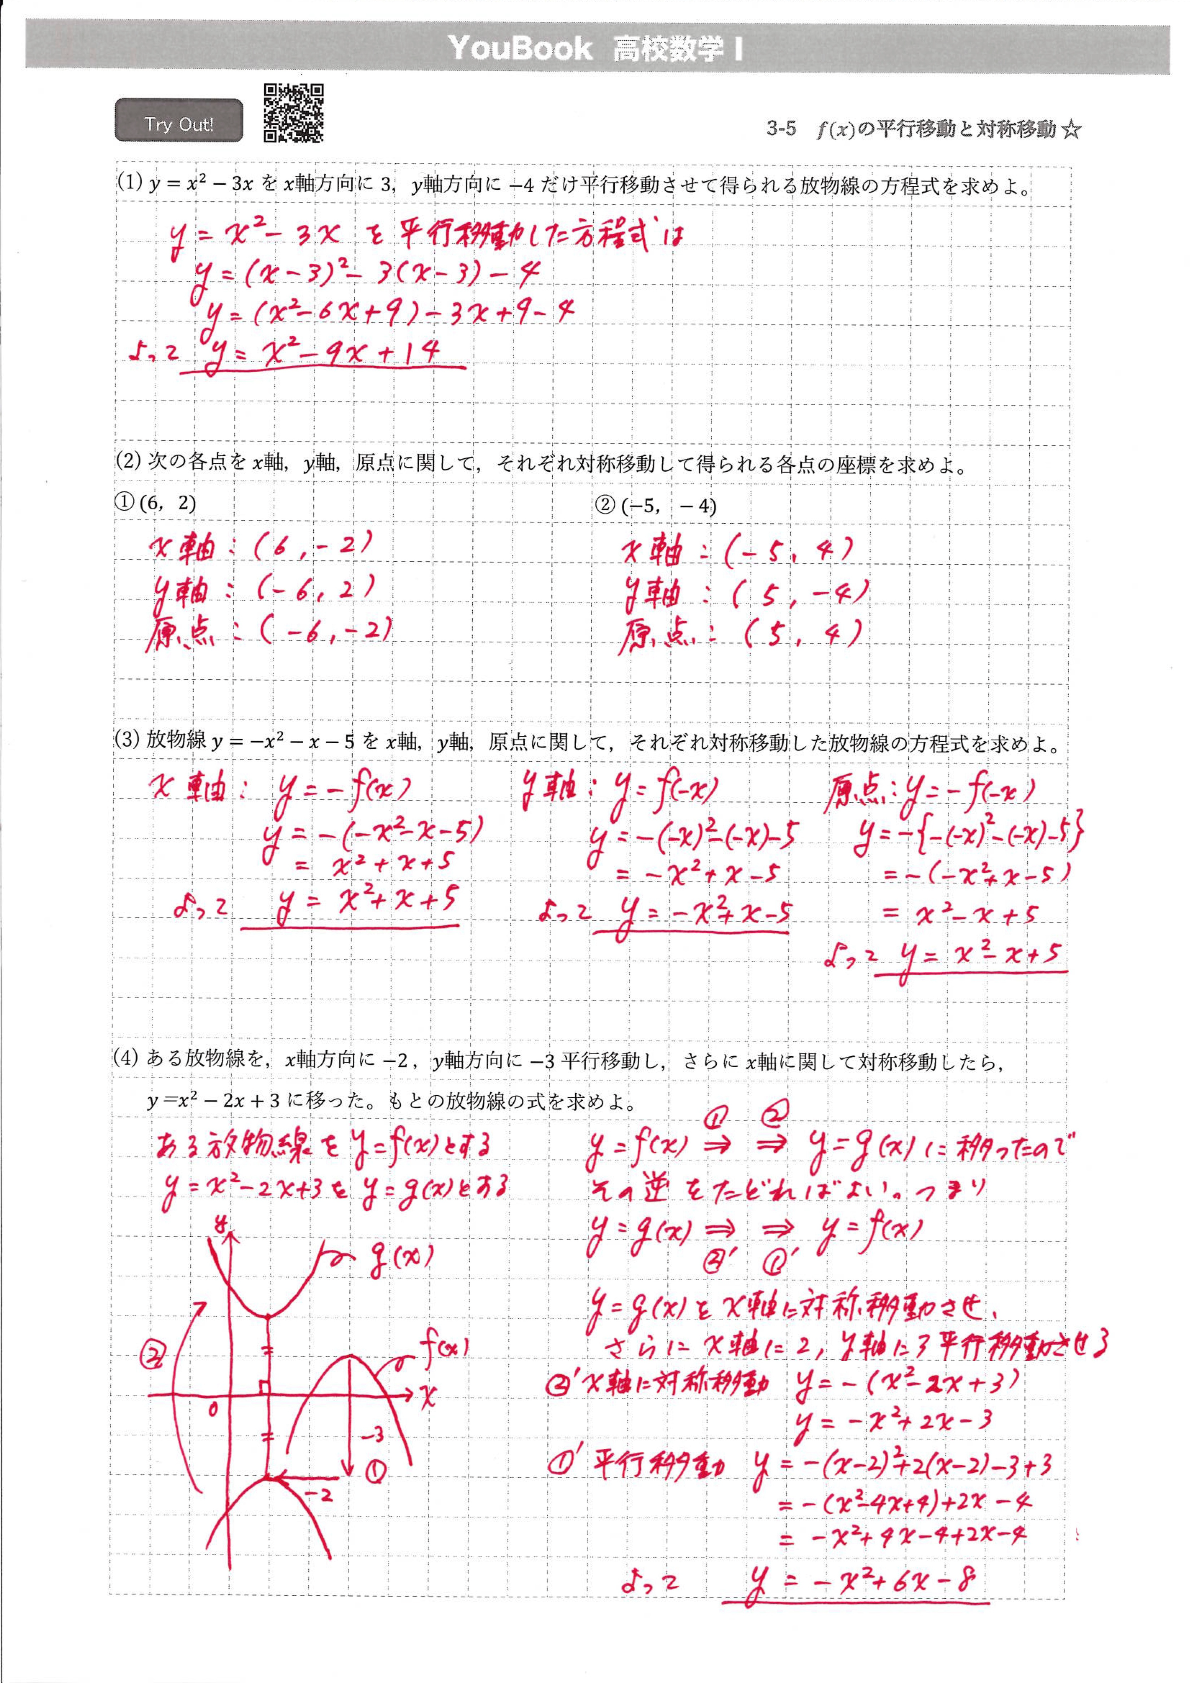 YouBook 高校数学 I
Try Out!
3-5 f(x)の平行移動と対称移動☆
(1) y = x² − 3x を x軸方向に 3, y軸方向に −4 だけ平行移動させて得られる放物線の方程式を求めよ。
y = x² − 3x を平行移動した方程式は
y = (x−3)² − 3(x−3) − 4
y = (x²−6x+9) − 3x + 9 − 4
よって y = x² − 9x + 14
(2) 次の各点を x軸, y軸, 原点に関して, それぞれ対称移動して得られる各点の座標を求めよ。
① (6, 2)
x軸 : (6, −2)
y軸 : (−6, 2)
原点 : (−6, −2)
② (−5, −4)
x軸 : (−5, 4)
y軸 : (5, −4)
原点 : (5, 4)
(3) 放物線 y = −x² − x − 5 を x軸, y軸, 原点に関して, それぞれ対称移動した放物線の方程式を求めよ。
x軸 : y = −f(x)
y = −(−x²−x−5)
= x² + x + 5
よって y = x² + x + 5
y軸 : y = f(−x)
y = −(−x)²−(−x)−5
= −x² + x − 5
よって y = −x² + x − 5
原点 : y = −f(−x)
y = −{−(−x)²−(−x)−5}
= −(−x²+x−5)
= x² − x + 5
よって y = x² − x + 5
(4) ある放物線を, x軸方向に −2, y軸方向に −3 平行移動し, さらに x軸に関して対称移動したら,
y = x² − 2x + 3 に移った。もとの放物線の式を求めよ。
ある放物線を y=f(x)とする
y = x²−2x+3を y=g(x)とする
y
g(x)
f(x)
②
x
0
−3
①
−2
① ②
y=f(x) ⇒ ⇒ y=g(x)に移ったので
その逆をたどればよい。つまり
y=g(x) ⇒ ⇒ y=f(x)
②′ ①′
y=g(x)をx軸に対称移動させ、
さらにx軸に2, y軸に3平行移動させる
②′ x軸に対称移動 y = −(x²−2x+3)
y = −x²+2x−3
①′ 平行移動 y = −(x−2)²+2(x−2)−3+3
= −(x²−4x+4)+2x−4
= −x²+4x−4+2x−4
よって y = −x²+6x−8